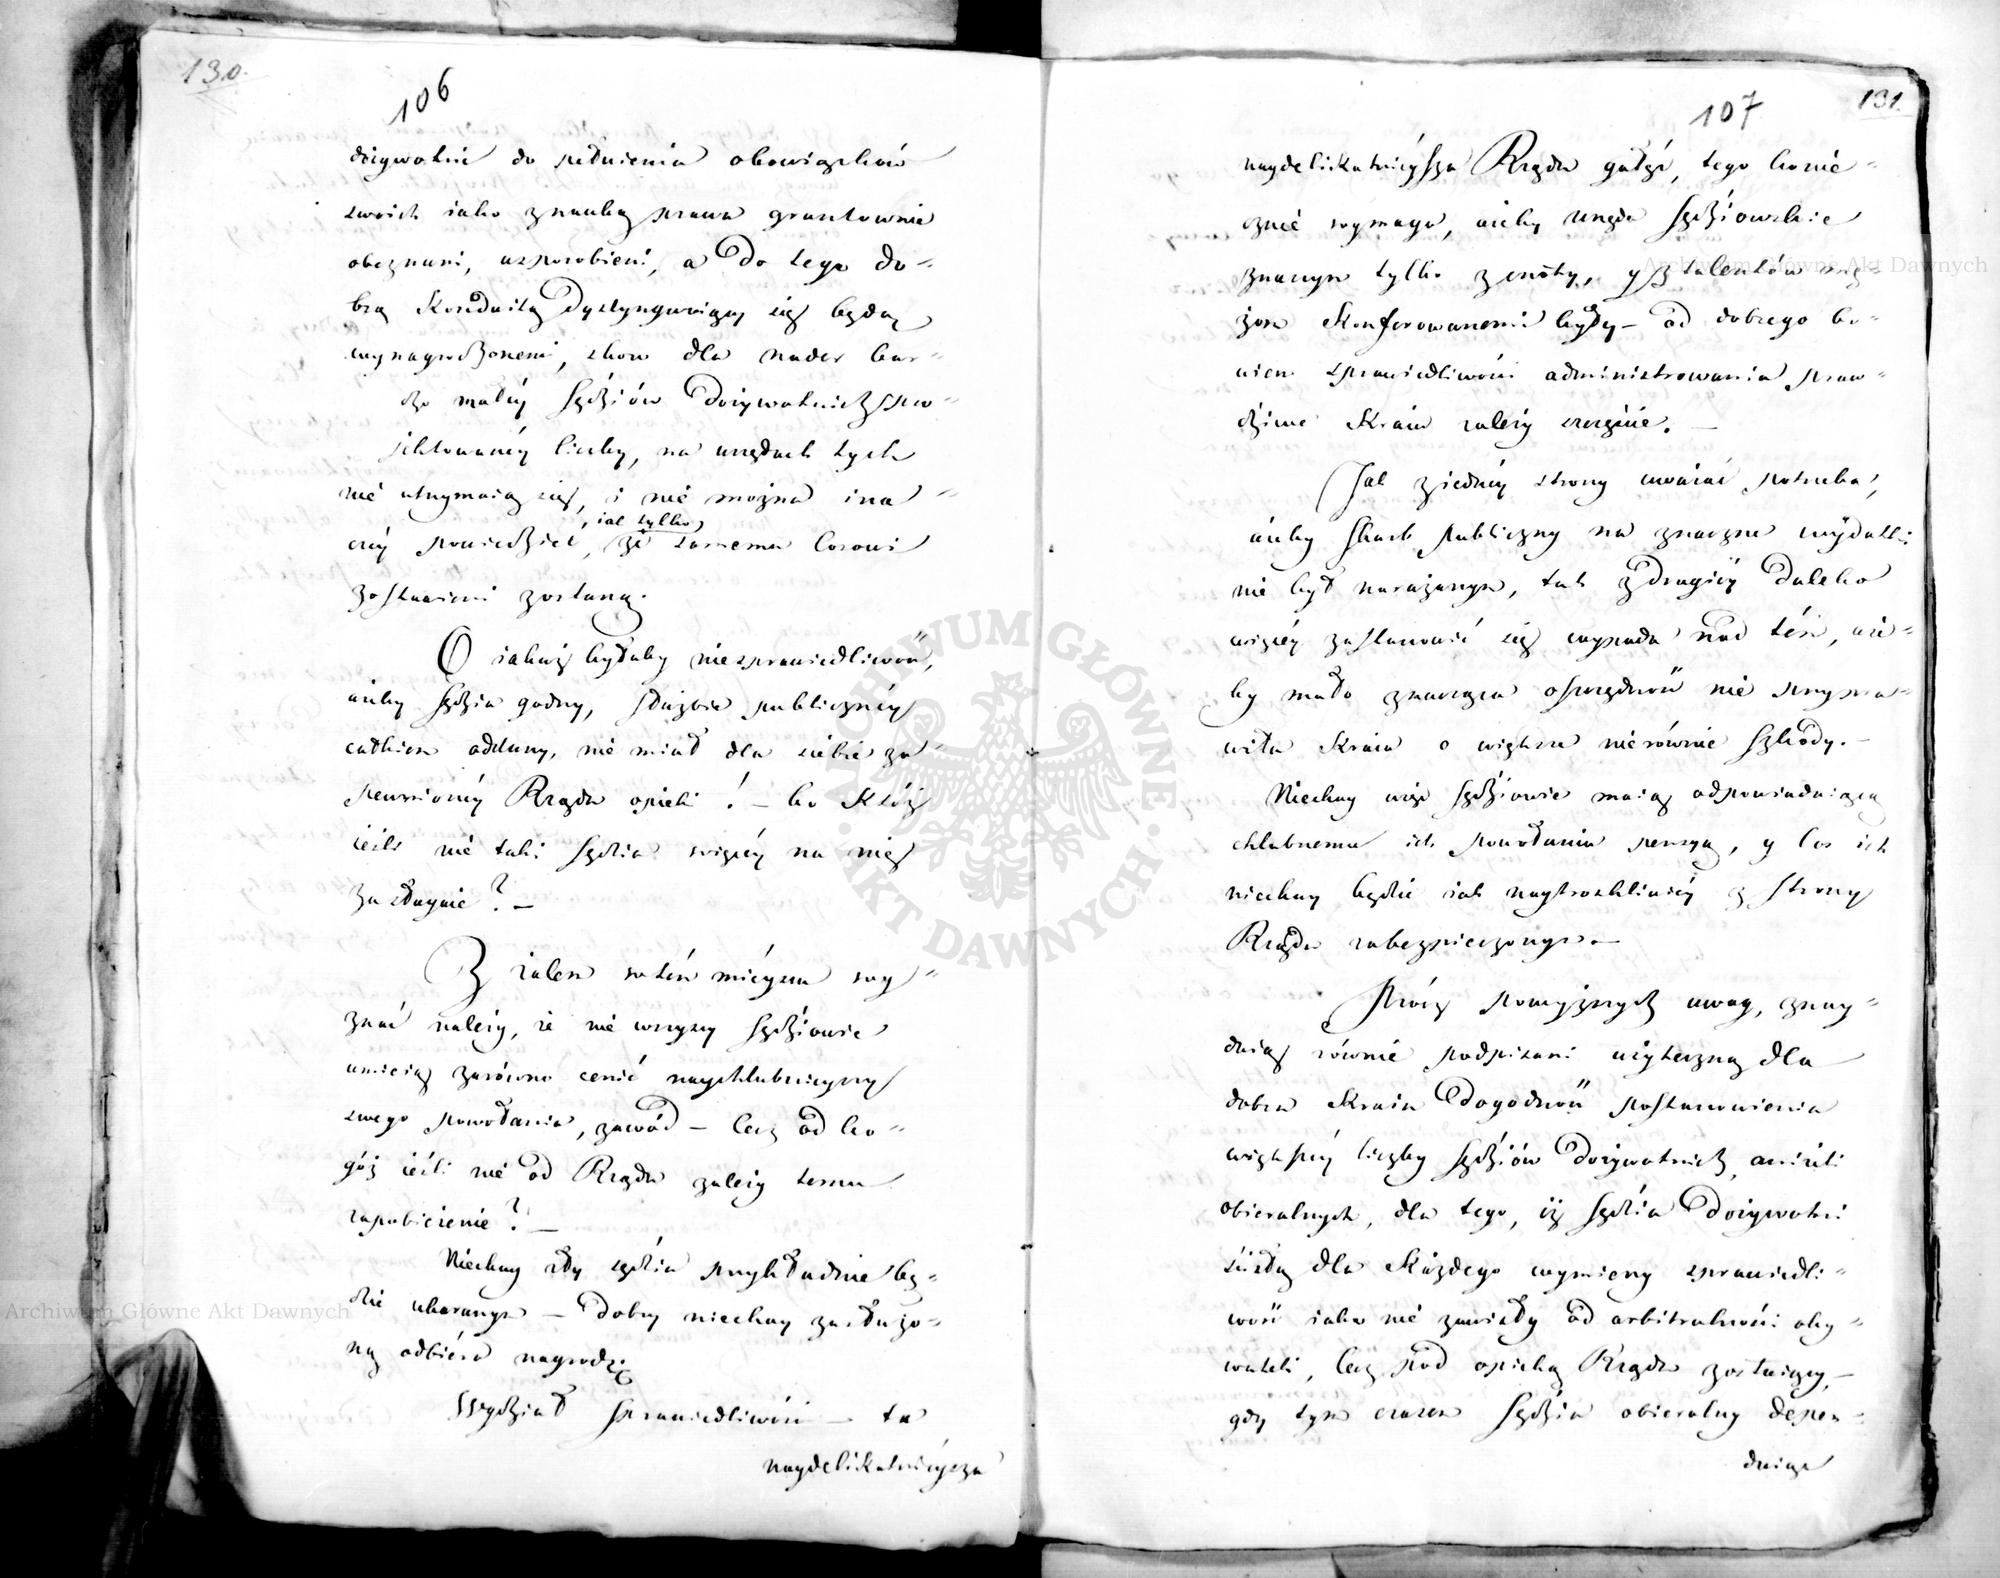 130.
106
dożywotnie do pełnienia obowiązków
swoich iako z nauką prawa gruntownie
obeznani, usposobieni, a do tego do=
brą Konduitą dystyngwuiący się będą
wynagrodzonemi, skoro dla nader bar=
dzo małéy Sędziów Dożywotnich pro=
jektowanéy liczby, na urzędach tych
nie utrzymaią się, i nie można ina=
czéy powiedzieć, iak tylko, że samemu losowi
zostawieni zostaną.
O iakaż byłaby niesprawiedliwość,
ażeby Sędzia godny, służbie publicznéy
całkiem oddany, nie miał dla siebie za=
pewnionéy Rządu opieki! – bo któż
ieśli nie taki Sędzia więcéy na nię
zasługuie? –
Z żalem w tém mieyscu wy=
znać należy, że nie wszyscy Sędziowie
umieią zarówno cenić naychlubnieyszy
swego powołania, zawód – lecz od ko=
góż ieśli nie od Rządu zależy temu
zapobieżenie? –
Niechay zły sędzia przykładnie bę=
dzie ukaranym – Dobry niechay zasłużo=
ną odbiéra nagrodę.
Wydział Sprawiedliwości – ta
naydelikatnieysza
131.
107
naydelikatnieysza Rządu gałęź, tego konie=
cznie wymaga, ażeby urzęda Sędziowskie
znanym tylko z cnoty, y z talentów mę=
żom Konferowanemi były – od dobrego bo=
wiem sprawiedliwości administrowania praw=
dziwe Kraiu zależy szczęście. –
Jak z iednéy strony uważać potrzeba,
ażeby Skarb publiczny na znaczne wydatki
nie był narażanym, tak z drugiéy daleko
więcéy zastanowić się wypada nad tém, aże=
by mało znacząca oszczędność nie przypra=
wiła Kraiu o większe nierównie szkody. –
Niechay więc Sędziowie maią odpowiadaiącą
chlubnemu ich powołaniu pensyą, y los ich
niechay będzie iak naytroskliwiéy z strony
Rządu zabezpieczonym. –
Prócz powyższych uwag, znay=
duią równie podpisani użyteczną dla
dobra Kraiu Dogodność postanowienia
większéy liczby Sędziów Dożywotnich, aniżeli
obieralnych, dla tego, iż Sędzia Dożywotni
ścisłą dla Każdego wymierzy sprawiedli=
wość iako nie zawisły od arbitralności oby=
wateli, lecz pod opieką Rządu zostaiący, –
gdy tym czasem Sędzia obieralny depen=
duiąc